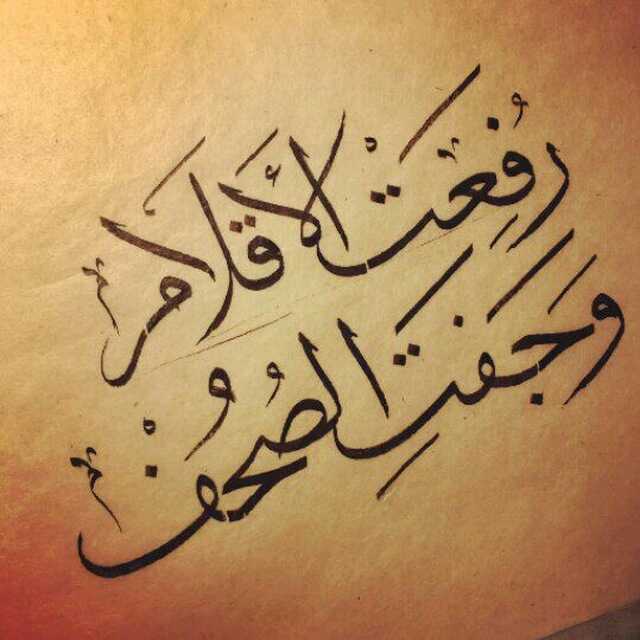 رُفِعَتْ الأَقْلَامُ
وَجَفَتِ الصُّحُفُ